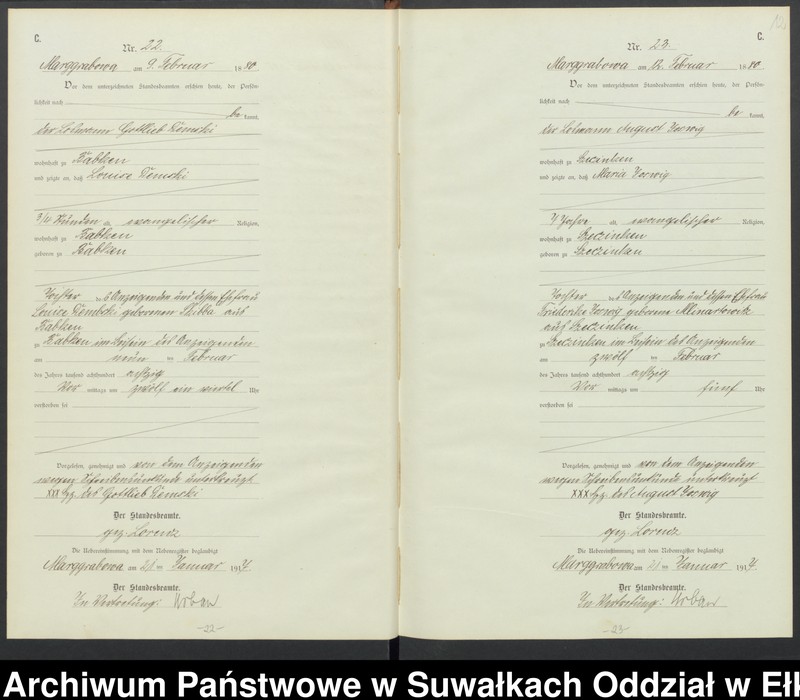 C.
Nr. 22.
Marggrabowa am 9. Februar 1880.
Vor dem unterzeichneten Standesbeamten erschien heute, der Persön-
lichkeit nach
be kannt,
der Losmann Gottlieb Klemski
wohnhaft zu Babken
und zeigte an, daß Louise
3/4 Stunden alt, evangelischer Religion,
wohnhaft zu Babken
geboren zu Babken
Tochter des Anzeigenden und dessen Ehefrau
Louise geborenen Skibba aus
Babken
zu Babken im Beisein des Anzeigenden
am neun ten Februar
des Jahres tausend achthundert achtzig
Vor mittags um zwölf ein viertel Uhr
verstorben sei
Vorgelesen, genehmigt und von dem Anzeigenden
wegen Schreibensunkunde unterkreuzt
XXX Hdz. des Gottlieb
Der Standesbeamte.
gez. Lorenz
Die Uebereinstimmung mit dem Nebenregister beglaubigt
Marggrabowa am 21 ten Januar 1914.
Der Standesbeamte.
In Vertretung: Urban
-22-
C.
Nr. 23.
Marggrabowa am 12. Februar 1880
Vor dem unterzeichneten Standesbeamten erschien heute, der Persön-
lichkeit nach
be kannt,
der Losmann August
wohnhaft zu Seezinken
und zeigte an, daß Maria
Jahre alt, evangelischer Religion,
wohnhaft zu
geboren zu
Tochter des Anzeigenden und dessen Ehefrau
Friederike geborene Mlinartowitz
aus
zu im Beisein des Anzeigenden
am zwölf ten Februar
des Jahres tausend achthundert achtzig
Vor mittags um fünf Uhr
verstorben sei
Vorgelesen, genehmigt und von dem Anzeigenden
wegen Schreibensunkunde unterkreuzt
XXX Hdz. des August
Der Standesbeamte.
gez. Lorenz
Die Uebereinstimmung mit dem Nebenregister beglaubigt
Marggrabowa am 21 ten Januar 1914.
Der Standesbeamte.
In Vertretung: Urban
-23-
Archiwum Państwowe w Suwałkach Oddział w Eł